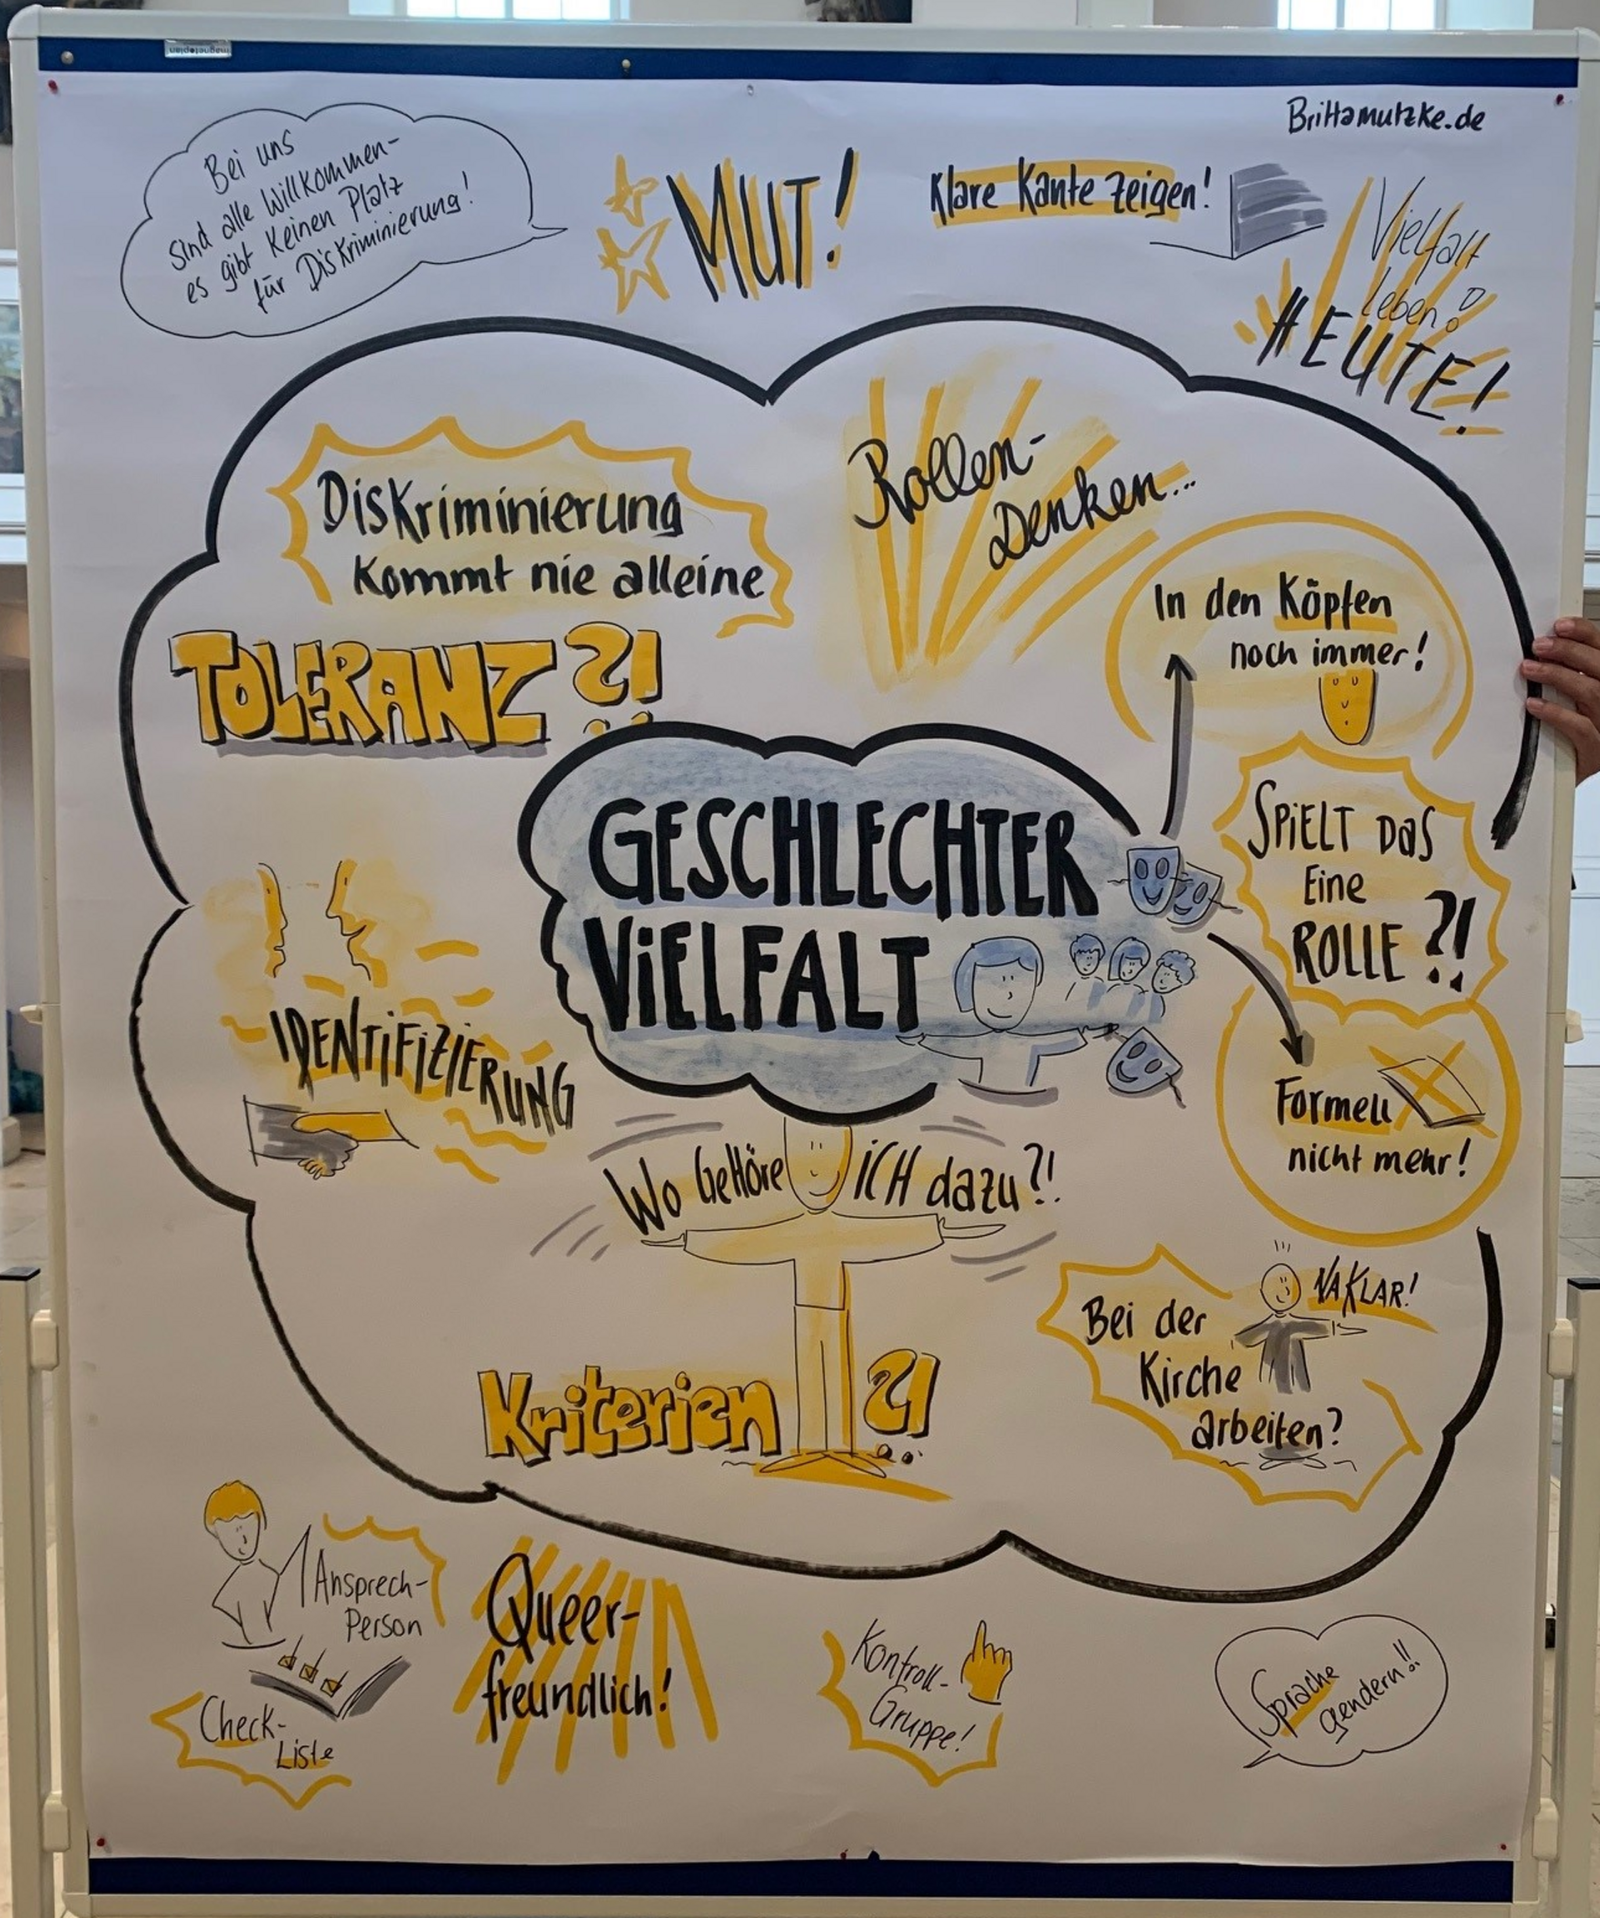 magnetoplan
Brittamutzke.de
Bei uns
sind alle Willkommen-
es gibt keinen Platz
für Diskriminierung!
MUT!
Klare Kante zeigen!
Vielfalt
leben!
HEUTE!
Diskriminierung
kommt nie alleine
Rollen-
Denken...
In den Köpfen
noch immer!
TOLERANZ?!
GESCHLECHTER
VIELFALT
SPIELT DAS
Eine
ROLLE?!
IDENTIFIZIERUNG
Formell
nicht mehr!
Wo Gehöre ICH dazu?!
Bei der
Kirche
arbeiten?
NA KLAR!
Kriterien?!
Ansprech-
Person
Check-
Liste
Queer-
freundlich!
Kontroll-
Gruppe!
Sprache
gendern!!